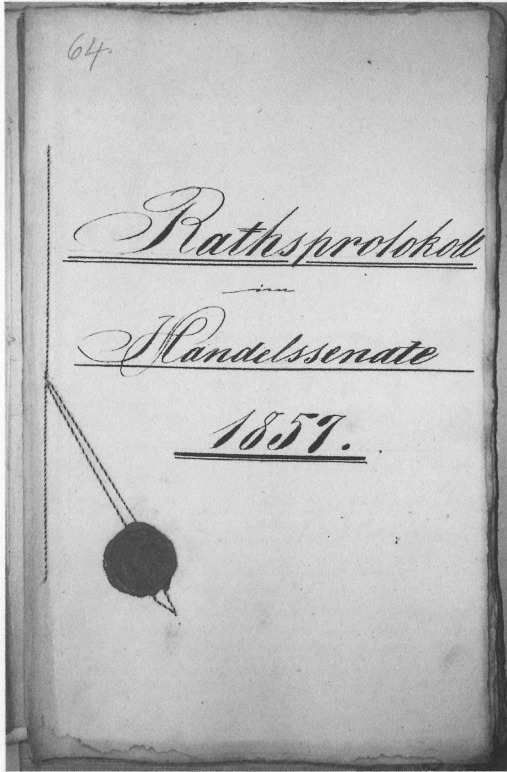 64.
Rathsprotokoll
im
Handelssenate
1857.